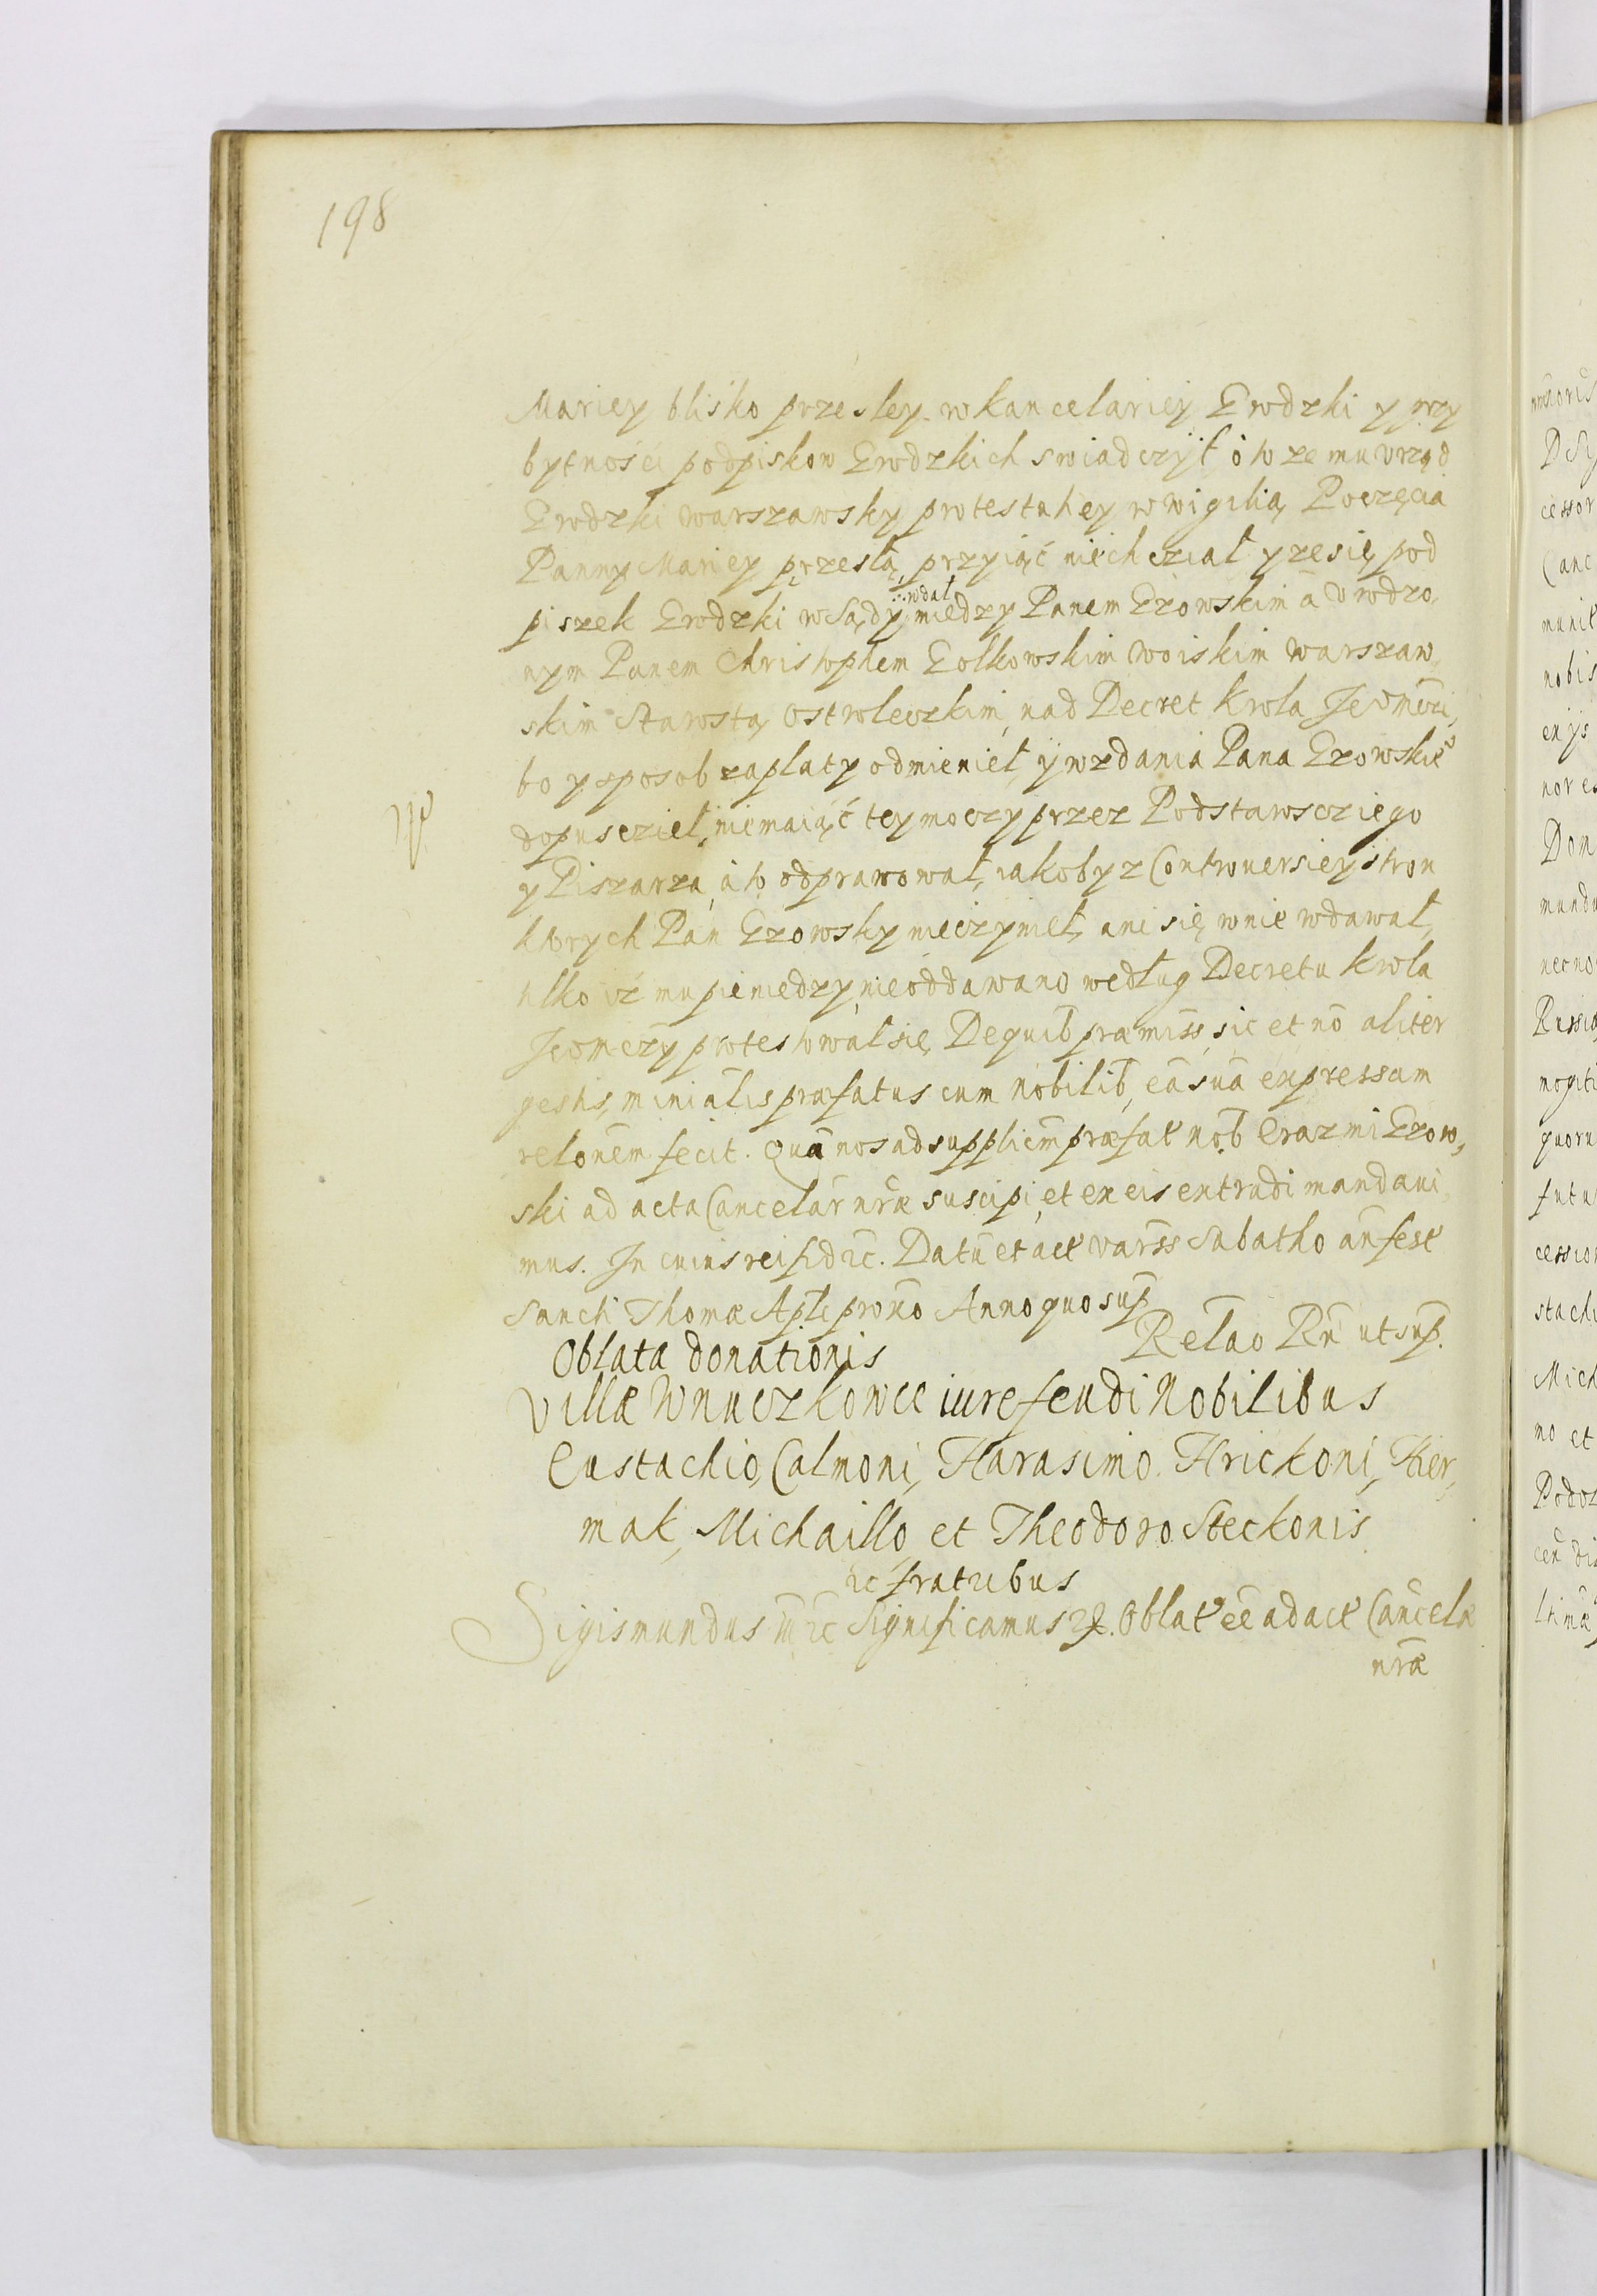 198
Mariey blisko przesley w kancelariey Grodzki y przy
bytności podpiskow Grodzkich swiadczył o to ze mu vrząd
Grodzki warszawsky protestatiey w wigilią Poczęcia
Panny Mariey przesłą, przyiąć niechcział y ze się pod
wdał
piszek Grodzki w Sądy miedzy Panem Gzowskim a Vrodzo,
nym Panem Christophem Golkowskim woiskim warszaw
skim Starostą ostroleczkim, nad Decret krola Jeomczi,
bo y sposob zaplaty odmienieł, y wzdania Pana Gzowskie
dopuscziel, niemaiąć tey moczy przez Podstarosczieg​o
y Pisarza, a to odprawował, iakoby z Controuersiey stron
ktorych Pan Gzowsky nieczynieł, ani się w nie wdawał,
tilko iż mu pieniedzy, nieoddawano według Decretu krola
Jeomczy protestowal się. De quib præmiss, sic et nō aliter
gestis, minialis præfatus cum nobilib, eā suā expressam
relonem fecit. Quā nos ad supplicm præfat nob Erazmi Gzow,
ski ad acta Cancelar nræ suscipi, et ex eis extradi mandaui,
mus. In cuius rei fid ꝛc. Datū et act varss Sabatho an fest
Sancti Thomæ Apli proxo Anno quo sup
Relao Rn ut sup.
Oblata donationis
Villæ Wnuczkowce iure feudi Nobilibus
Eustachio, Calmoni, Harasimo. Hrickoni, Kier,
mak, Michaillo et Theodoro Steckonis
ꝛc fratribus
Sigismundus III ꝛc Significamus ꝛc. Oblat eē ad act Cancelæ
nræ